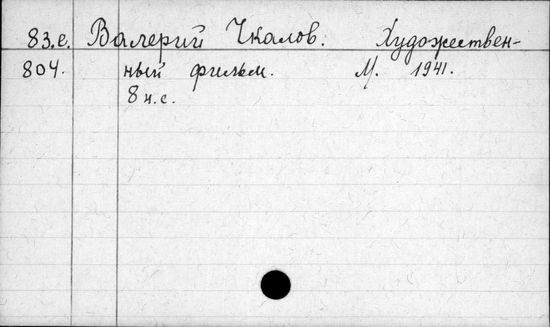 83.е. Валерий Чкалов. Художествен-
804. ный фильм. М. 1941.
8 н.с.